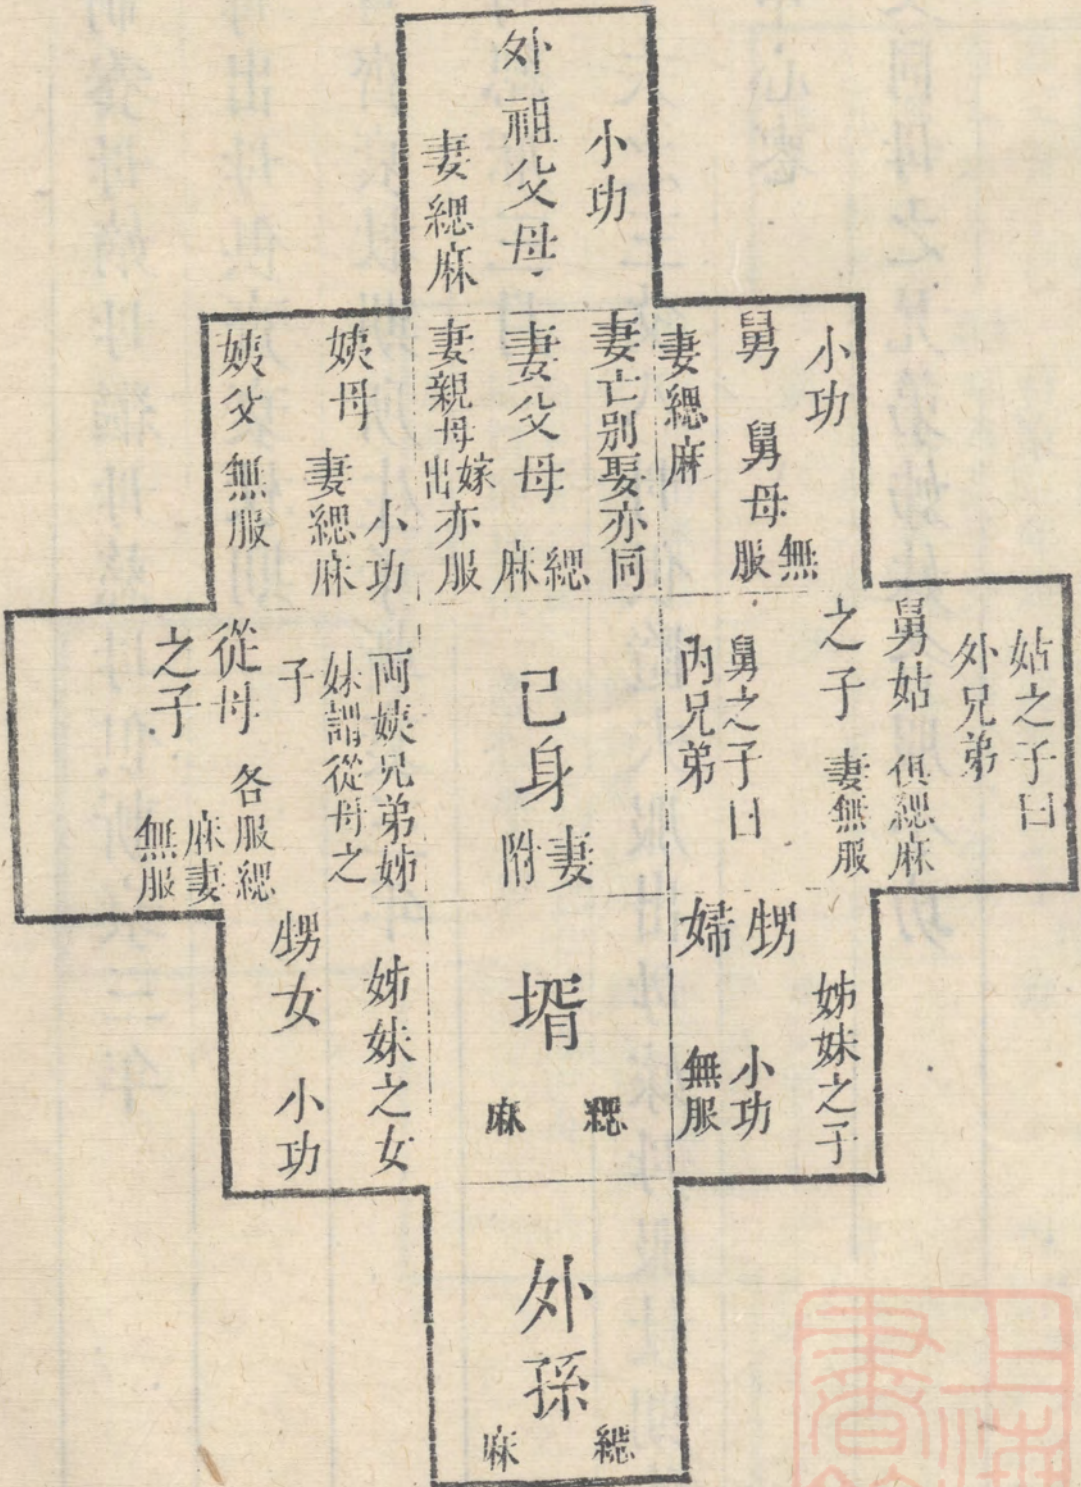 小功
外祖父母
妻緦麻
小功
舅 舅母無服
妻緦麻
妻亡別娶亦同
妻父母緦麻
妻親母嫁出亦服
姨母 小功
妻緦麻
姨父 無服
姑之子曰
外兄弟
舅姑 俱緦麻
之子 妻無服
舅之子曰
內兄弟
己身
妻附
両姨兄弟姊
妹謂從母之
子
從母 各服緦
之子 麻妻
無服
姊妹之子
甥 小功
婦 無服
壻
緦麻
姊妹之女
甥女 小功
外孫
緦麻
上海
書